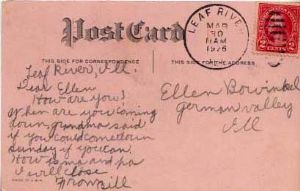 Post Card
THIS SIDE FOR CORRESPONDENCE
THIS SIDE FOR
LEAF RIVER
MAR
30
AM
1926
Leaf River, Ill.
Dear Ellen
How are you?
When are you coming
down grandma said
if you could come down
Sunday if you can.
How is ma and pa
I will close
From
Ellen Bowinkel
german valley
Ill